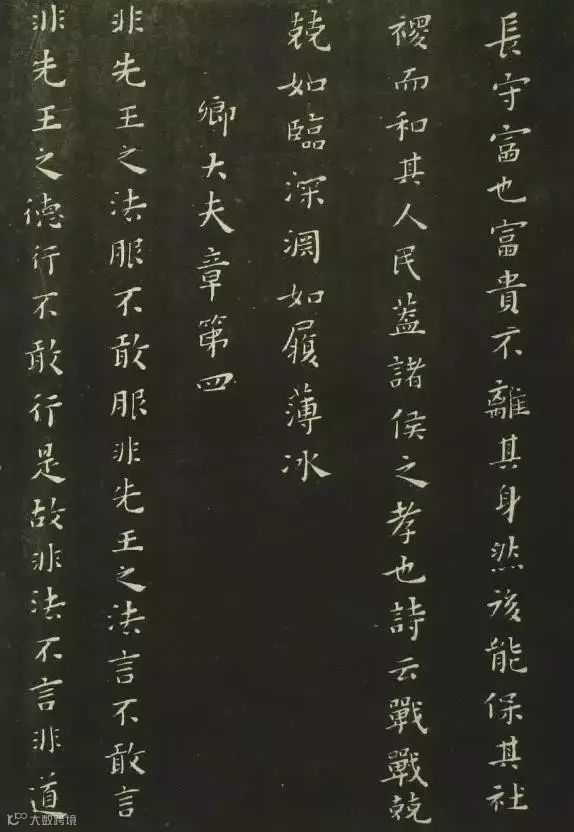 長守富也富貴不離其身然後能保其社
稷而和其人民蓋諸侯之孝也詩云戰戰兢
兢如臨深淵如履薄冰
卿大夫章第四
非先王之法服不敢服非先王之法言不敢言
非先王之德行不敢行是故非法不言非道
大数跨境